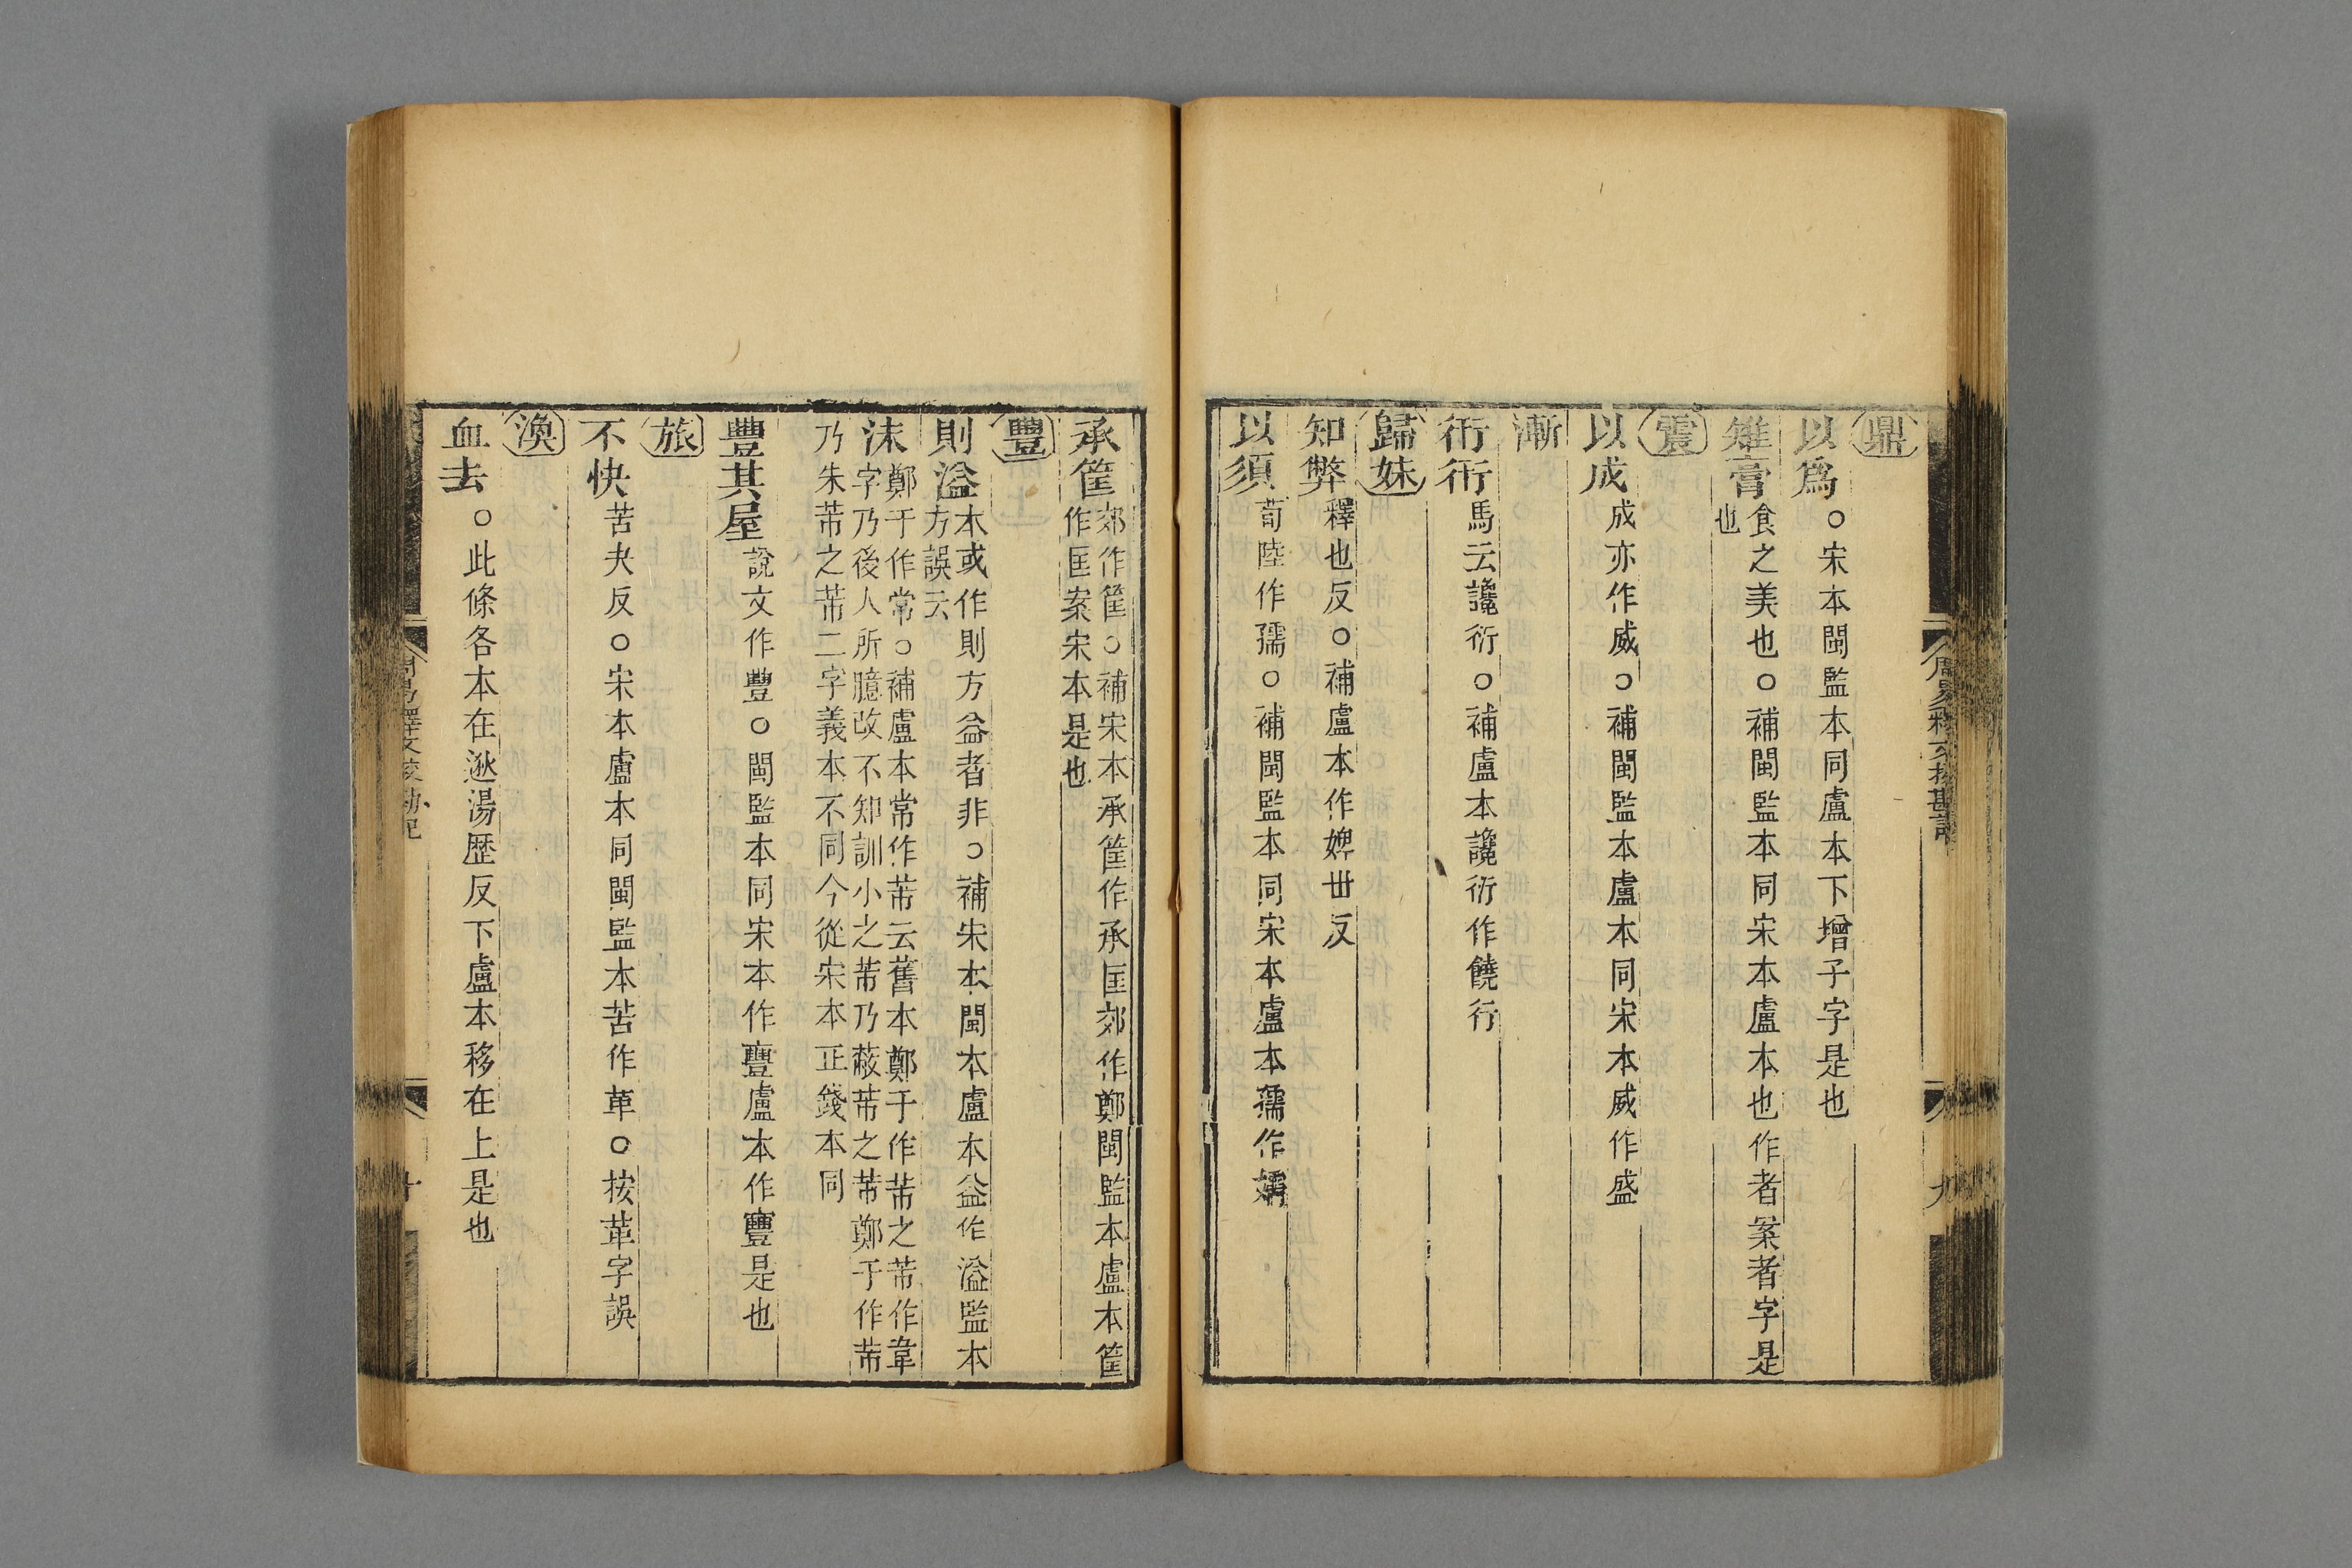 鼎
以爲○宋本閩監本同盧本下增子字是也
雉膏食之美也○補閩監本同宋本盧本也作者案者字是
也
震
以成成亦作威○補閩監本盧本同宋本威作盛
漸
衎衎馬云讒衎○補盧本讒衎作饒衎
歸妹
知弊釋也反○補盧本作婢世反
以須荀陸作孺○補閩監本同宋本盧本孺作嬬
周易釋文挍勘記
九
承筐郊作筐○補宋本承筐作承匡郊作鄭閩監本盧本筐
作匡案宋本是也
豐
則溢本或作則方益者非○補宋本閩本盧本益作溢監本
方誤云
沬鄭干作常○補盧本常作芾云舊本鄭于作芾之芾作韋
字乃後人所臆改不知訓小之芾乃蔽芾之芾鄭于作芾
乃朱芾之芾二字義本不同今從宋本正錢本同
豐其屋說文作豐○閩監本同宋本作寷盧本作寷是也
旅
不快苦夬反○宋本盧本同閩監本苦作革○按革字誤
渙
血去○此條各本在逖湯歴反下盧本移在上是也
周易釋文挍勘記
十